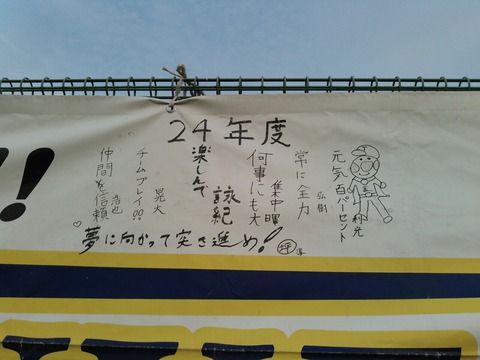 24年度
元気百パーセント
常に全力
弘樹
何事にも
集中
楽しんで
詠紀
晃大
チームプレイ
仲間を信頼
浩也
夢に向かって突き進め!
!!